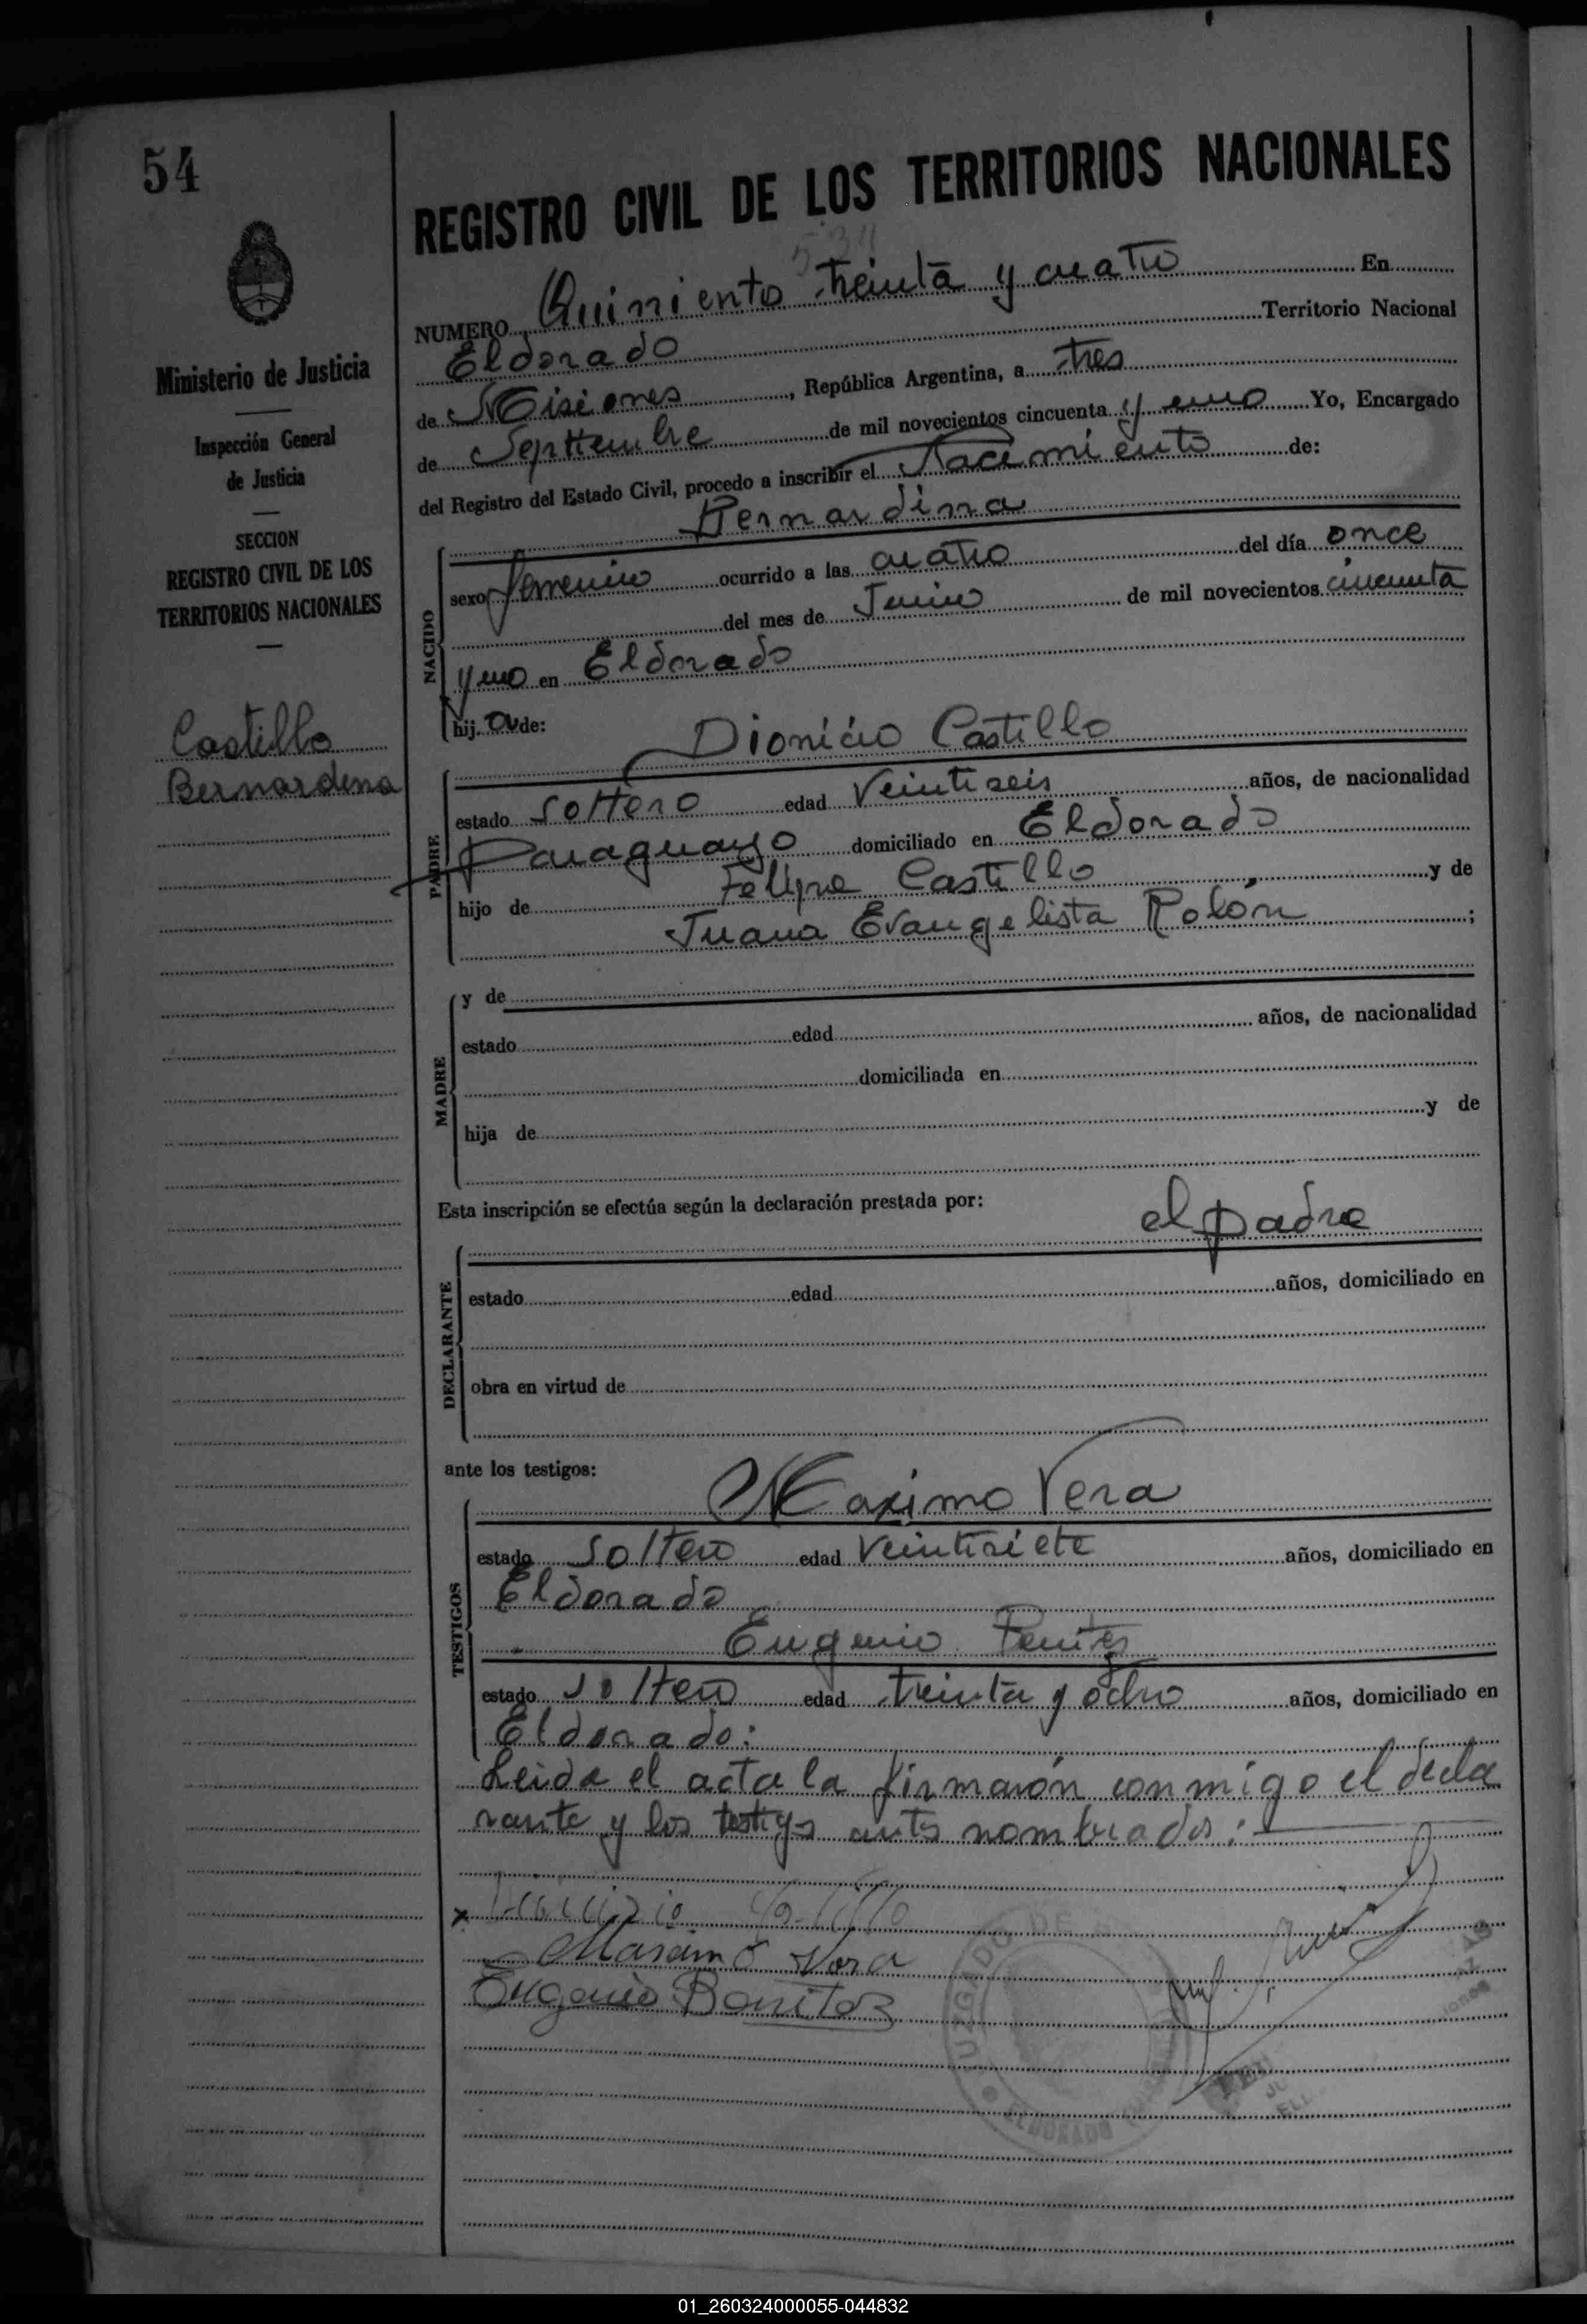 54
Ministerio de Justicia
Inspección General
de Justicia
SECCION
REGISTRO CIVIL DE LOS
TERRITORIOS NACIONALES
Castillo
Bernardina
REGISTRO CIVIL DE LOS TERRITORIOS NACIONALES
534
NUMERO Quiniento treinta y cuatro En
Eldorado Territorio Nacional
de Misiones, República Argentina, a tres
de Septtembre de mil novecientos cincuenta y uno Yo, Encargado
del Registro del Estado Civil, procedo a inscribir el Nacimiento de:
Bernardina
NACIDO
sexo femenino ocurrido a las cuatro del día once
del mes de Junio de mil novecientos cincuenta
y uno en Eldorado
hij. a de:
Dionicio Castillo
PADRE
estado soltero edad Veintiseis años, de nacionalidad
Paraguayo domiciliado en Eldorado
hijo de Felipe Castillo y de
Juana Evangelista Rolón ;
MADRE
y de
estado edad años, de nacionalidad
domiciliada en
hija de y de
Esta inscripción se efectúa según la declaración prestada por:
el padre
DECLARANTE
estado edad años, domiciliado en
obra en virtud de
ante los testigos:
Maximo Vera
TESTIGOS
estado soltero edad Veintisiete años, domiciliado en
Eldorado
Eugenio Benitez
estado soltero edad treinta y ocho años, domiciliado en
Eldorado:
Leida el acta la firmarón conmigo el decla
rante y los testigos antes nombrados:
x
Masimo Vera
Eugenio Benitez
JUZGADO DE
ELDORADO
01_260324000055-044832